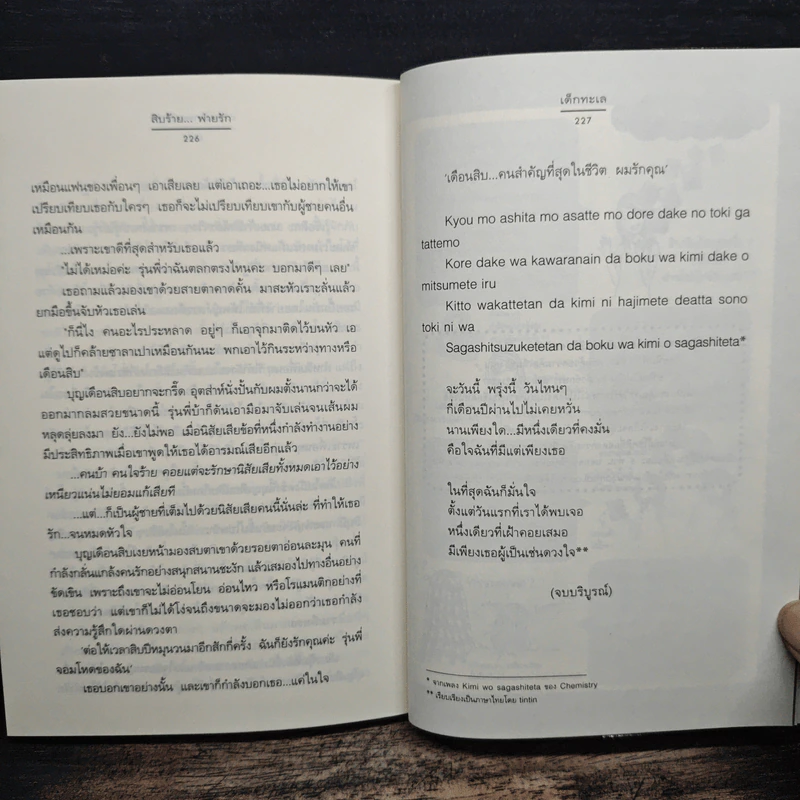 สิบร้าย... พ่ายรัก
226
เหมือนแฟนของเพื่อนๆ เอาเสียเลย แต่เอาเถอะ...เธอไม่อยากให้เขา
เปรียบเทียบเธอกับใครๆ เธอก็จะไม่เปรียบเทียบเขากับผู้ชายคนอื่น
เหมือนกัน
...เพราะเขาดีที่สุดสำหรับเธอแล้ว
"ไม่ได้เหม่อค่ะ รุ่นพี่ว่าฉันตลกตรงไหนคะ บอกมาดีๆ เลย"
เธอถามแล้วมองเขาด้วยสายตาคาดคั้น มาสะหัวเราะลั่นแล้ว
ยกมือขึ้นจับหัวเธอเล่น
"ก็นี่ไง คนอะไรประหลาด อยู่ๆ ก็เอาจุกมาติดไว้บนหัว เอ
แต่ดูไปก็คล้ายซาลาเปาเหมือนกันนะ พกเอาไว้กินระหว่างทางหรือ
เดือนสิบ"
บุญเดือนสิบอยากจะกรี๊ด อุตส่าห์นั่งปั้นกับผมตั้งนานกว่าจะได้
ออกมากลมสวยขนาดนี้ รุ่นพี่บ้าก็ดันเอามือมาจับเล่นจนเส้นผม
หลุดลุ่ยลงมา ยัง...ยังไม่พอ เมื่อนิสัยเสียข้อที่หนึ่งกำลังทำงานอย่าง
มีประสิทธิภาพเมื่อเขาพูดให้เธอได้อารมณ์เสียอีกแล้ว
...คนบ้า คนใจร้าย คอยแต่จะรักษานิสัยเสียทั้งหมดเอาไว้อย่าง
เหนียวแน่นไม่ยอมแก้เสียที
...แต่...ก็เป็นผู้ชายที่เต็มไปด้วยนิสัยเสียคนนี้นั่นล่ะ ที่ทำให้เธอ
รัก...จนหมดหัวใจ
บุญเดือนสิบเงยหน้ามองสบตาเขาด้วยรอยตาอ่อนละมุน คนที่
กำลังกลั่นแกล้งคนรักอย่างสนุกสนานชะงัก แล้วเสมองไปทางอื่นอย่าง
ขัดเขิน เพราะถึงเขาจะไม่อ่อนโยน อ่อนไหว หรือโรแมนติกอย่างที่
เธอชอบว่า แต่เขาก็ไม่ได้โง่จนถึงขนาดจะมองไม่ออกว่าเธอกำลัง
ส่งความรู้สึกใดผ่านดวงตา
'ต่อให้เวลาสิบปีหมุนวนมาอีกสักกี่ครั้ง ฉันก็ยังรักคุณค่ะ รุ่นพี่
จอมโหดของฉัน'
เธอบอกเขาอย่างนั้น และเขาก็กำลังบอกเธอ...แค่ในใจ
เด็กทะเล
227
'เดือนสิบ...คนสำคัญที่สุดในชีวิต ผมรักคุณ'
Kyou mo ashita mo asatte mo dore dake no toki ga
tattemo
Kore dake wa kawaranain da boku wa kimi dake o
mitsumete iru
Kitto wakattetan da kimi ni hajimete deatta sono
toki ni wa
Sagashitsuzuketetan da boku wa kimi o sagashiteta*
จะวันนี้ พรุ่งนี้ วันไหนๆ
กี่เดือนปีผ่านไปไม่เคยหวั่น
นานเพียงใด...มีหนึ่งเดียวที่คงมั่น
คือใจฉันที่มีแต่เพียงเธอ
ในที่สุดฉันก็มั่นใจ
ตั้งแต่วันแรกที่เราได้พบเจอ
หนึ่งเดียวที่เฝ้าคอยเสมอ
มีเพียงเธอผู้เป็นเช่นดวงใจ**
(จบบริบูรณ์)
* จากเพลง Kimi wo sagashiteta ของ Chemistry
** เรียบเรียงเป็นภาษาไทยโดย tintin